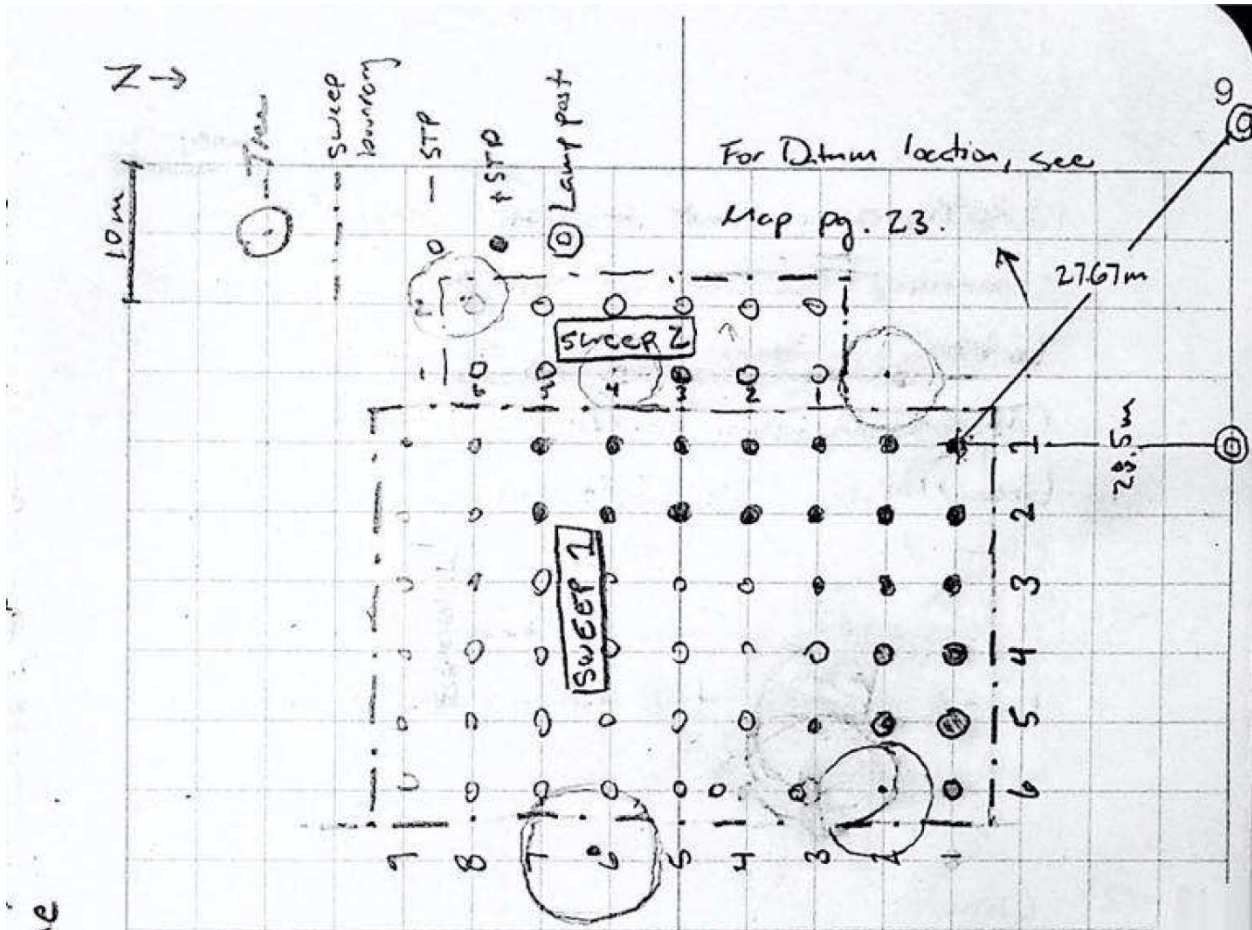 N →
10 m
Tree
Sweep
boundary
— STP
+ STP
Lamp post
For Datum location, see
Map pg. 23.
9
27.67m
28.5m
SWEEP 2
5
4
3
2
1
SWEEP 1
1
2
3
4
5
6
9
8
7
6
5
4
3
2
1